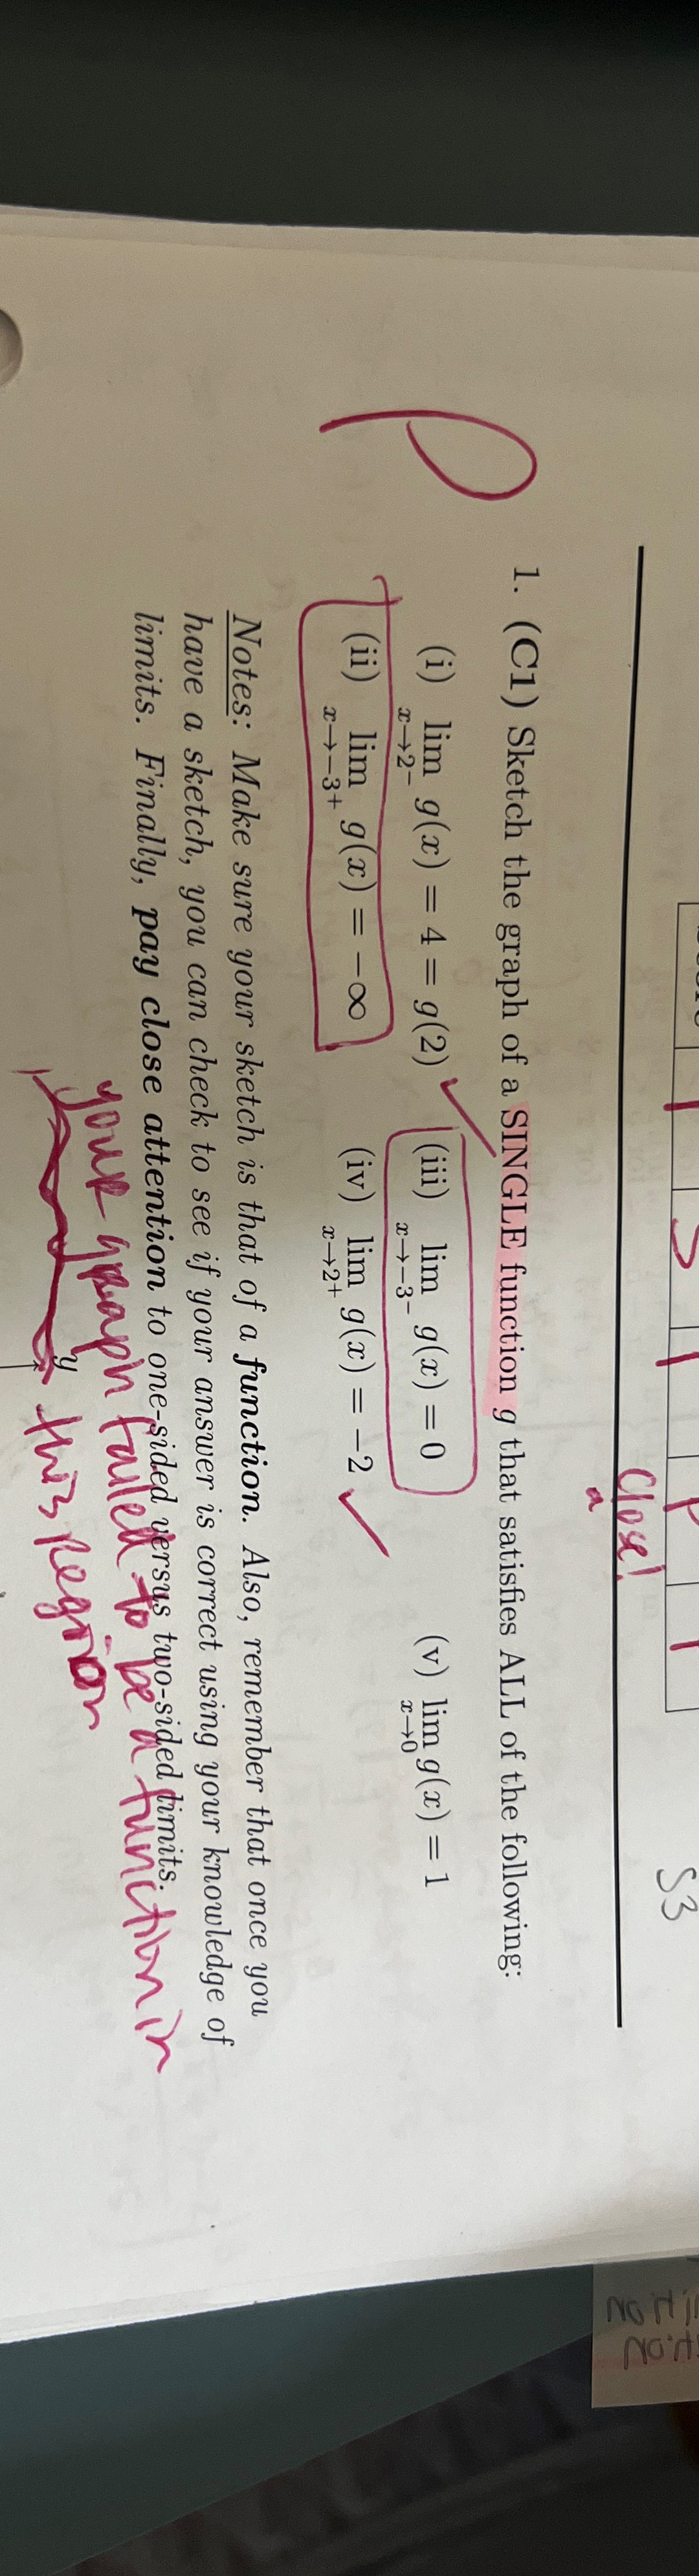 Close!
S3
1. (C1) Sketch the graph of a SINGLE function g that satisfies ALL of the following:
(i) lim x→2⁻ g(x) = 4 = g(2) ✓ (iii) lim x→−3⁻ g(x) = 0 (v) lim x→0 g(x) = 1
(ii) lim x→−3⁺ g(x) = −∞ (iv) lim x→2⁺ g(x) = −2 ✓
P
Notes: Make sure your sketch is that of a function. Also, remember that once you
have a sketch, you can check to see if your answer is correct using your knowledge of
limits. Finally, pay close attention to one-sided versus two-sided limits.
your graph failed to be a function in
this region
y